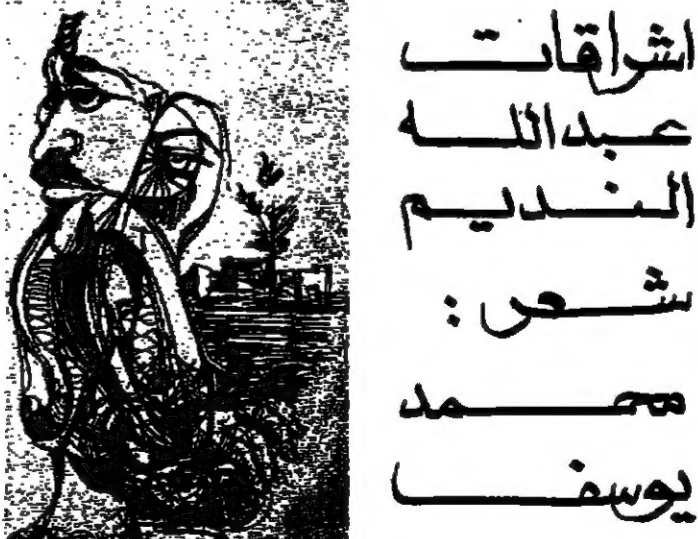 اشراقات
عبدالله
النديم
شعر :
محمد
يوسف